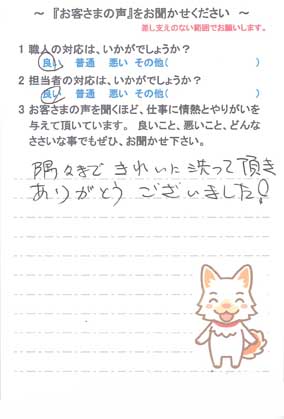 ～ 『お客さまの声』をお聞かせください ～
差し支えのない範囲でお願いします。
1 職人の対応は、いかがでしょうか？
良い 普通 悪い その他( )
2 担当者の対応は、いかがでしょうか？
良い 普通 悪い その他( )
3 お客さまの声を聞くほど、仕事に情熱とやりがいを
与えて頂いています。 良いこと、悪いこと、どんな
ささいな事でもぜひ、お聞かせ下さい。
隅々まで きれいに 洗って頂き
ありがとう ございました！